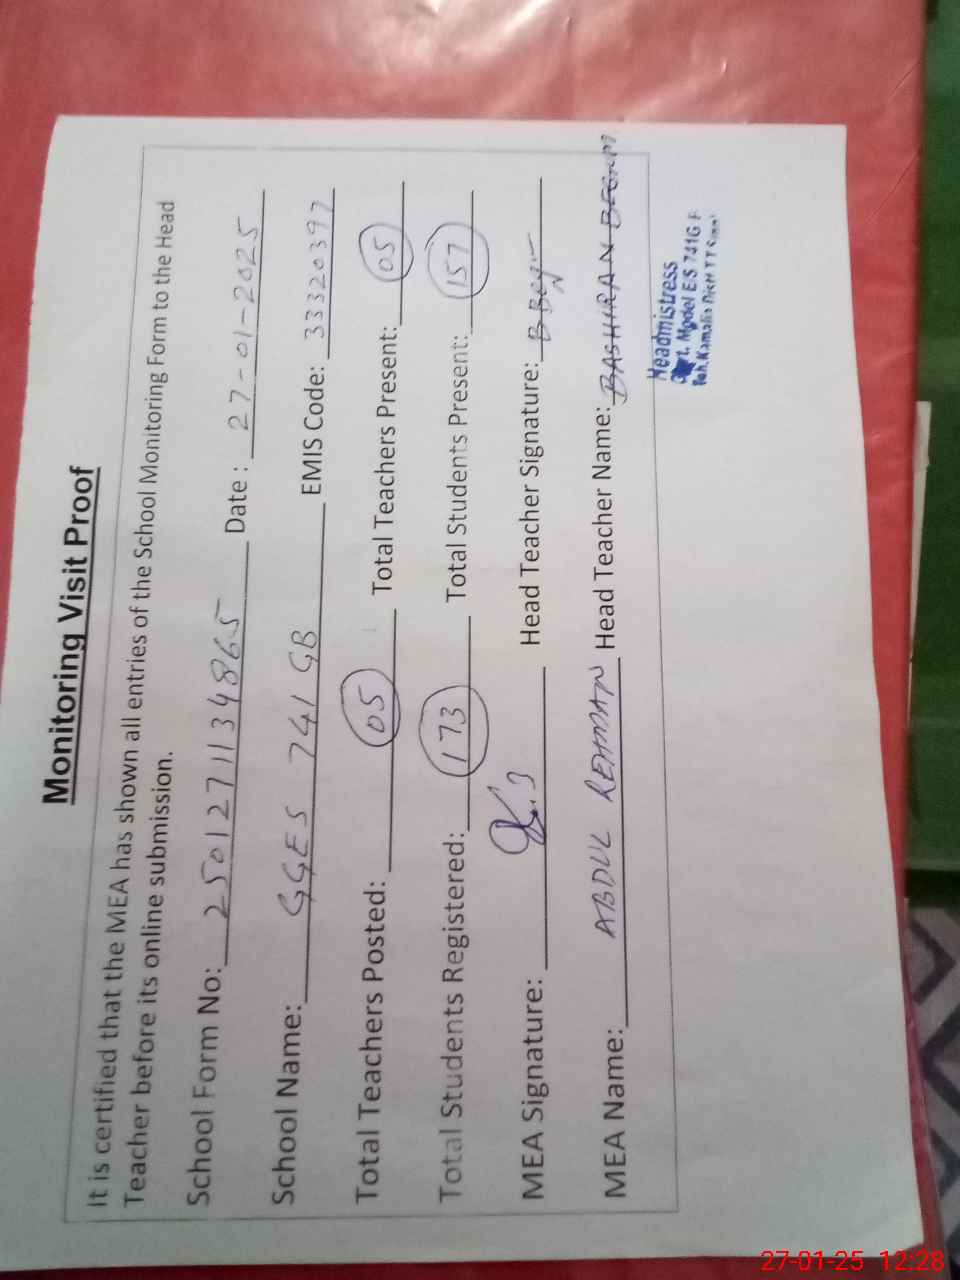 Monitoring Visit Proof
It is certified that the MEA has shown all entries of the School Monitoring Form to the Head
Teacher before its online submission.
School Form No: 2501271134865 Date : 27-01-2025
School Name: GGES 741 GB EMIS Code: 33320397
Total Teachers Posted: 05 Total Teachers Present: 05
Total Students Registered: 173 Total Students Present: 157
MEA Signature: Head Teacher Signature: B Begum
MEA Name: ABDUL REHMAN Head Teacher Name: BASHIRAN BEGUM
Headmistress
Govt. Model E/S 741G B
Teh. Kamalia Distt T T
27-01-25 12:28